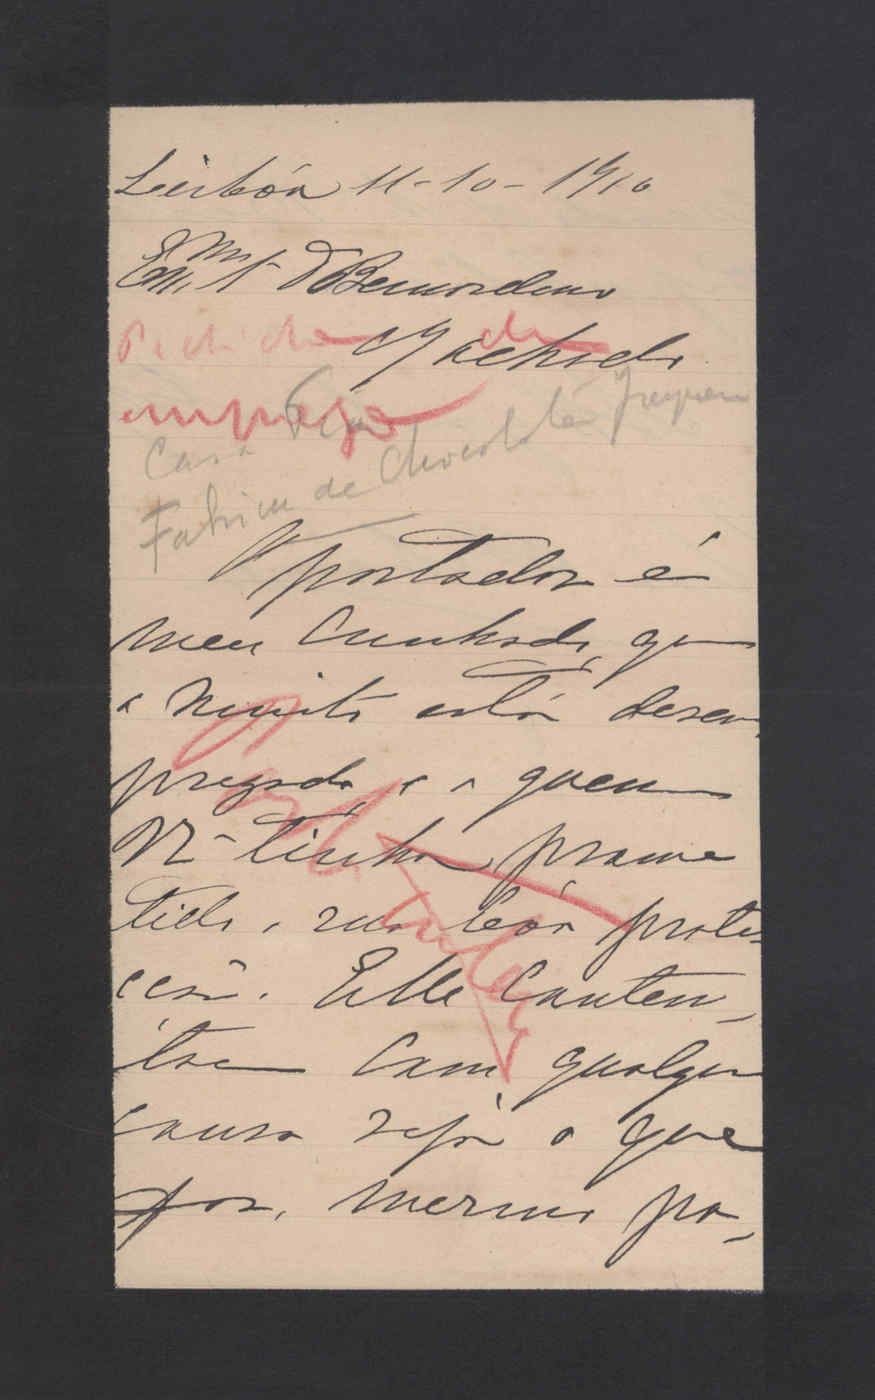 Lisbôa 11-10-1910
Exmo Sr Dr Bernardino
Machado
Pedido de
emprego
Casa Pia
Fabrica de Chocolate
O portador é
meu Cunhado, que
a muito está desem-
pregado, e a quem
VE tinha prome
tido a sua bôa prote-
ccão. Elle Conten-
tase Com qualquer
causa seja o que
for, mesmo pa-